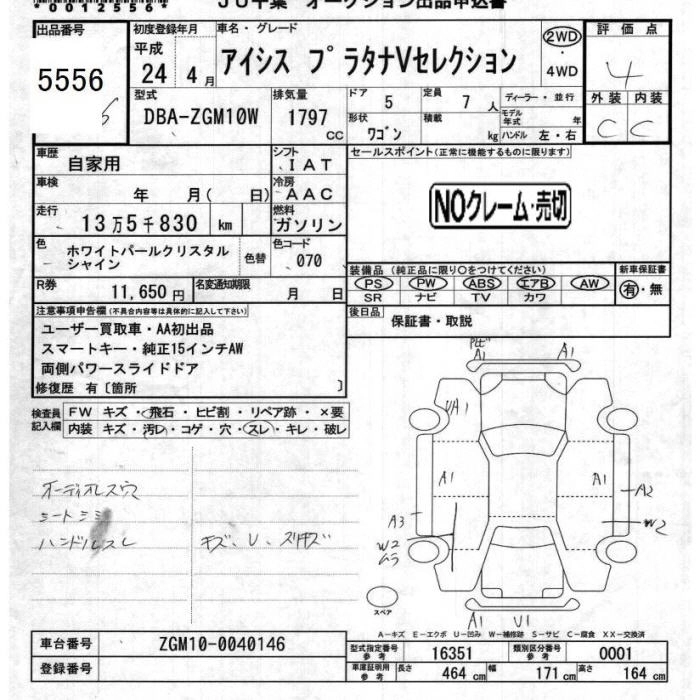 *0012556*
JU千葉 オークション出品申込書
出品番号
5556
5
初度登録年月
平成
24 4月
車名・グレード
アイシス プラタナVセレクション
2WD
・
4WD
評価点
4
外装 内装
C C
型式
DBA-ZGM10W
排気量
1797
CC
ドア 5
定員 7人
形状 ワゴン
積載 kg
ディーラー・並行
モデル年式 年
ハンドル 左・右
車歴
自家用
シフト
IAT
車検
年 月( 日)
冷房
AAC
走行
13万5千830 km
燃料
ガソリン
色
ホワイトパールクリスタル
シャイン
色替
色コード
070
R券
11,650円
名変通知期限
月 日
セールスポイント(正常に機能するものに限ります)
NOクレーム・売切
装備品(純正品に限り○をつけてください)
PS PW ABS エアB AW
SR ナビ TV カワ
新車保証書
有・無
後日品
保証書・取説
注意事項申告欄(不具合内容等は具体的に記入して下さい)
ユーザー買取車・AA初出品
スマートキー・純正15インチAW
両側パワースライドドア
修復歴 有〔箇所 〕
検査員
記入欄
FW キズ・飛石・ヒビ割・リペア跡・×要
内装 キズ・汚レ・コゲ・穴・スレ・キレ・破レ
オーディオレス穴
シートシミ
ハンドルスレ
キズ、U、スリキズ
A1
A1
UA1
A1
A1
A2
A3
W2
W2
ムラ
スペア
A1 U1
A-キズ E-エクボ U-凹み W-補修跡 S-サビ C-腐食 XX-交換済
車台番号
ZGM10-0040146
登録番号
型式指定番号
参考
16351
類別区分番号
参考
0001
車庫証明用
参考
長さ 464 cm 幅 171 cm 高さ 164 cm